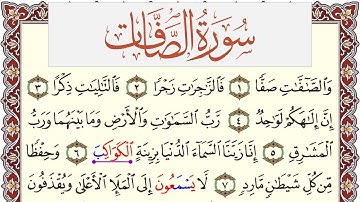 سُورَةُ الصَّافَّاتِ
وَٱلصَّٰٓفَّٰتِ صَفًّا ١ فَٱلزَّٰجِرَٰتِ زَجْرًا ٢ فَٱلتَّٰلِيَٰتِ ذِكْرًا ٣
إِنَّ إِلَٰهَكُمْ لَوَٰحِدٌ ٤ رَّبُّ ٱلسَّمَٰوَٰتِ وَٱلْأَرْضِ وَمَا بَيْنَهُمَا وَرَبُّ
ٱلْمَشَٰرِقِ ٥ إِنَّا زَيَّنَّا ٱلسَّمَآءَ ٱلدُّنْيَا بِزِينَةٍ ٱلْكَوَاكِبِ ٦ وَحِفْظًا
مِّن كُلِّ شَيْطَٰنٍ مَّارِدٍ ٧ لَّا يَسَّمَّعُونَ إِلَى ٱلْمَلَإِ ٱلْأَعْلَىٰ وَيُقْذَفُونَ